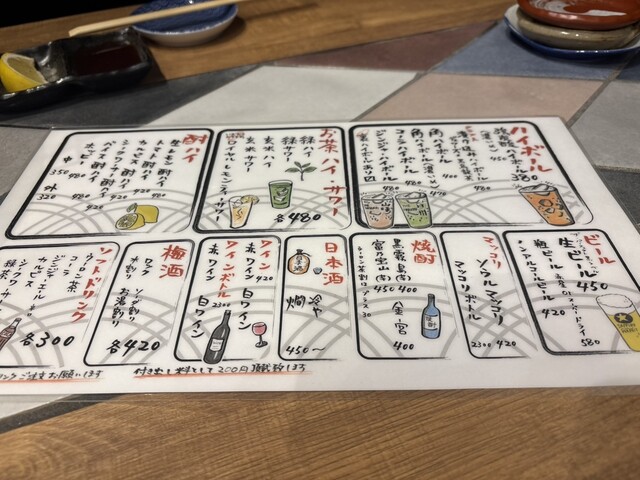 ハイボール
380
角ハイボール
コーラハイボール
ジンジャーハイボール
480
480
400
450
お茶ハイ・サワー
緑ハイ
緑サワー
玄米ハイ
玄米サワー
各480
酎ハイ
生レモン酎ハイ
トマト酎ハイ
カルピス酎ハイ
シークワーサー酎ハイ
ホッピー
中 350
外 320
480
480
420
420
ビール
生ビール 450
瓶ビール 580
ノンアルコールビール 420
マッコリ
ソウルマッコリ 420
マッコリボトル 2300
焼酎
黒霧島(芋) 450
富乃宝山(芋) 400
金宮 400
日本酒
冷や
燗
450〜
ワイン 420
赤ワイン
白ワイン
ワインボトル 2300
赤ワイン
白ワイン
梅酒
ロック
水割り
ソーダ割り
お湯割り
各420
ソフトドリンク
ウーロン茶
コーラ
ジンジャーエール
カルピス
緑茶
各300
付き出し料として200円頂戴致します